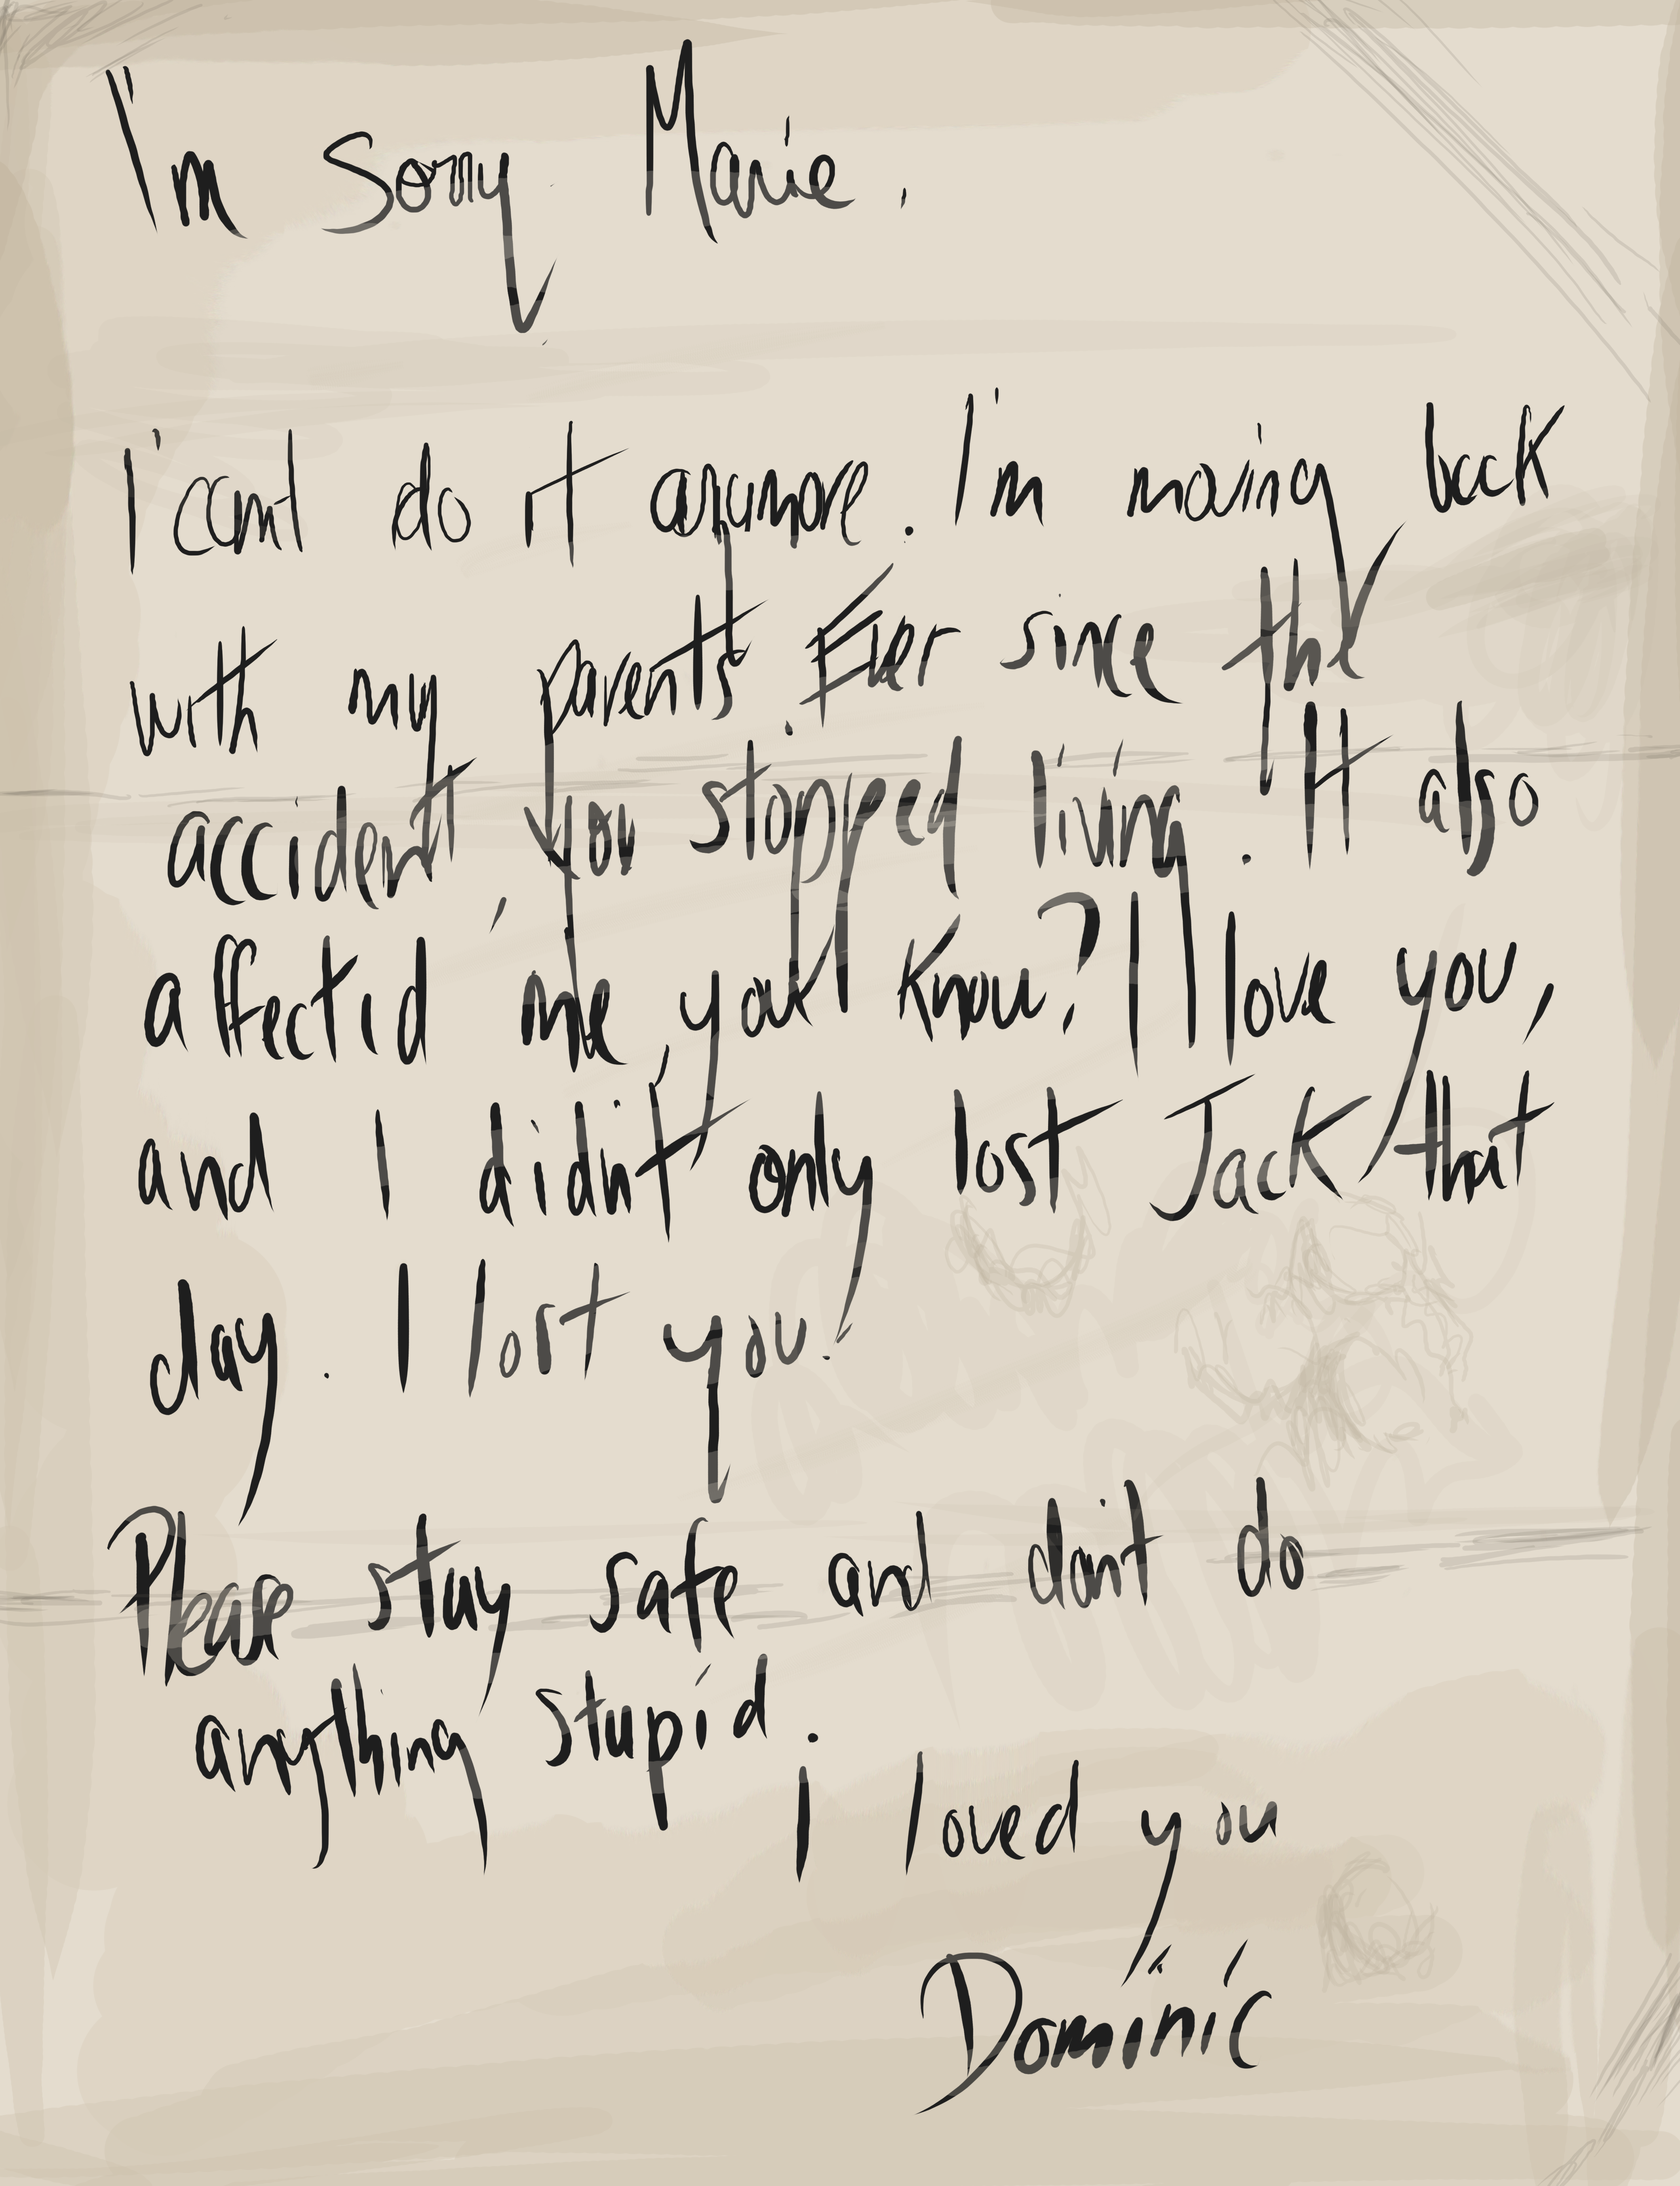 I'm sorry Marie.
I can't do it anymore. I'm moving back
with my parents. Ever since the
accident, you stopped living. It also
affectid me you know? I love you,
and I didn't only lost Jack that
day. I lost you.
Please stay safe and don't do
anything stupid.
I loved you
Dominic